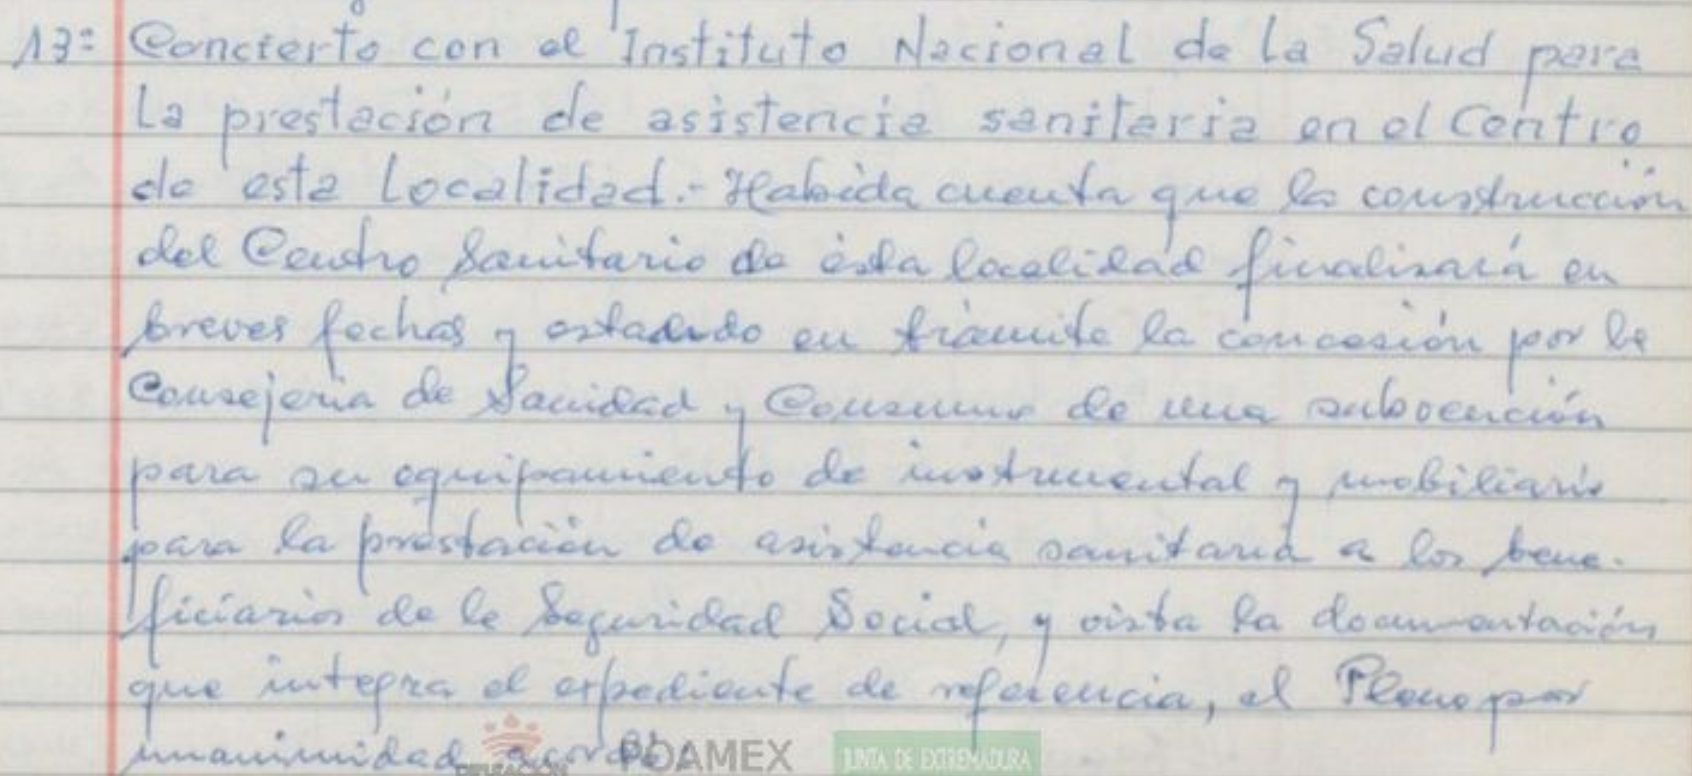 13º Concierto con el Instituto Nacional de la Salud para
la prestación de asistencia sanitaria en el Centro
de esta Localidad.- Habida cuenta que la construcción
del Centro Sanitario de ésta localidad finalizará en
breves fechas y estando en trámite la concesión por la
Consejería de Sanidad y Consumo de una subvención
para su equipamiento de instrumental y mobiliario
para la prestación de asistencia sanitaria a los bene-
ficiarios de la Seguridad Social, y vista la documentación
que integra el expediente de referencia, el Pleno por
unanimidad acordó:
DIPUTACIÓN PDAMEX JUNTA DE EXTREMADURA